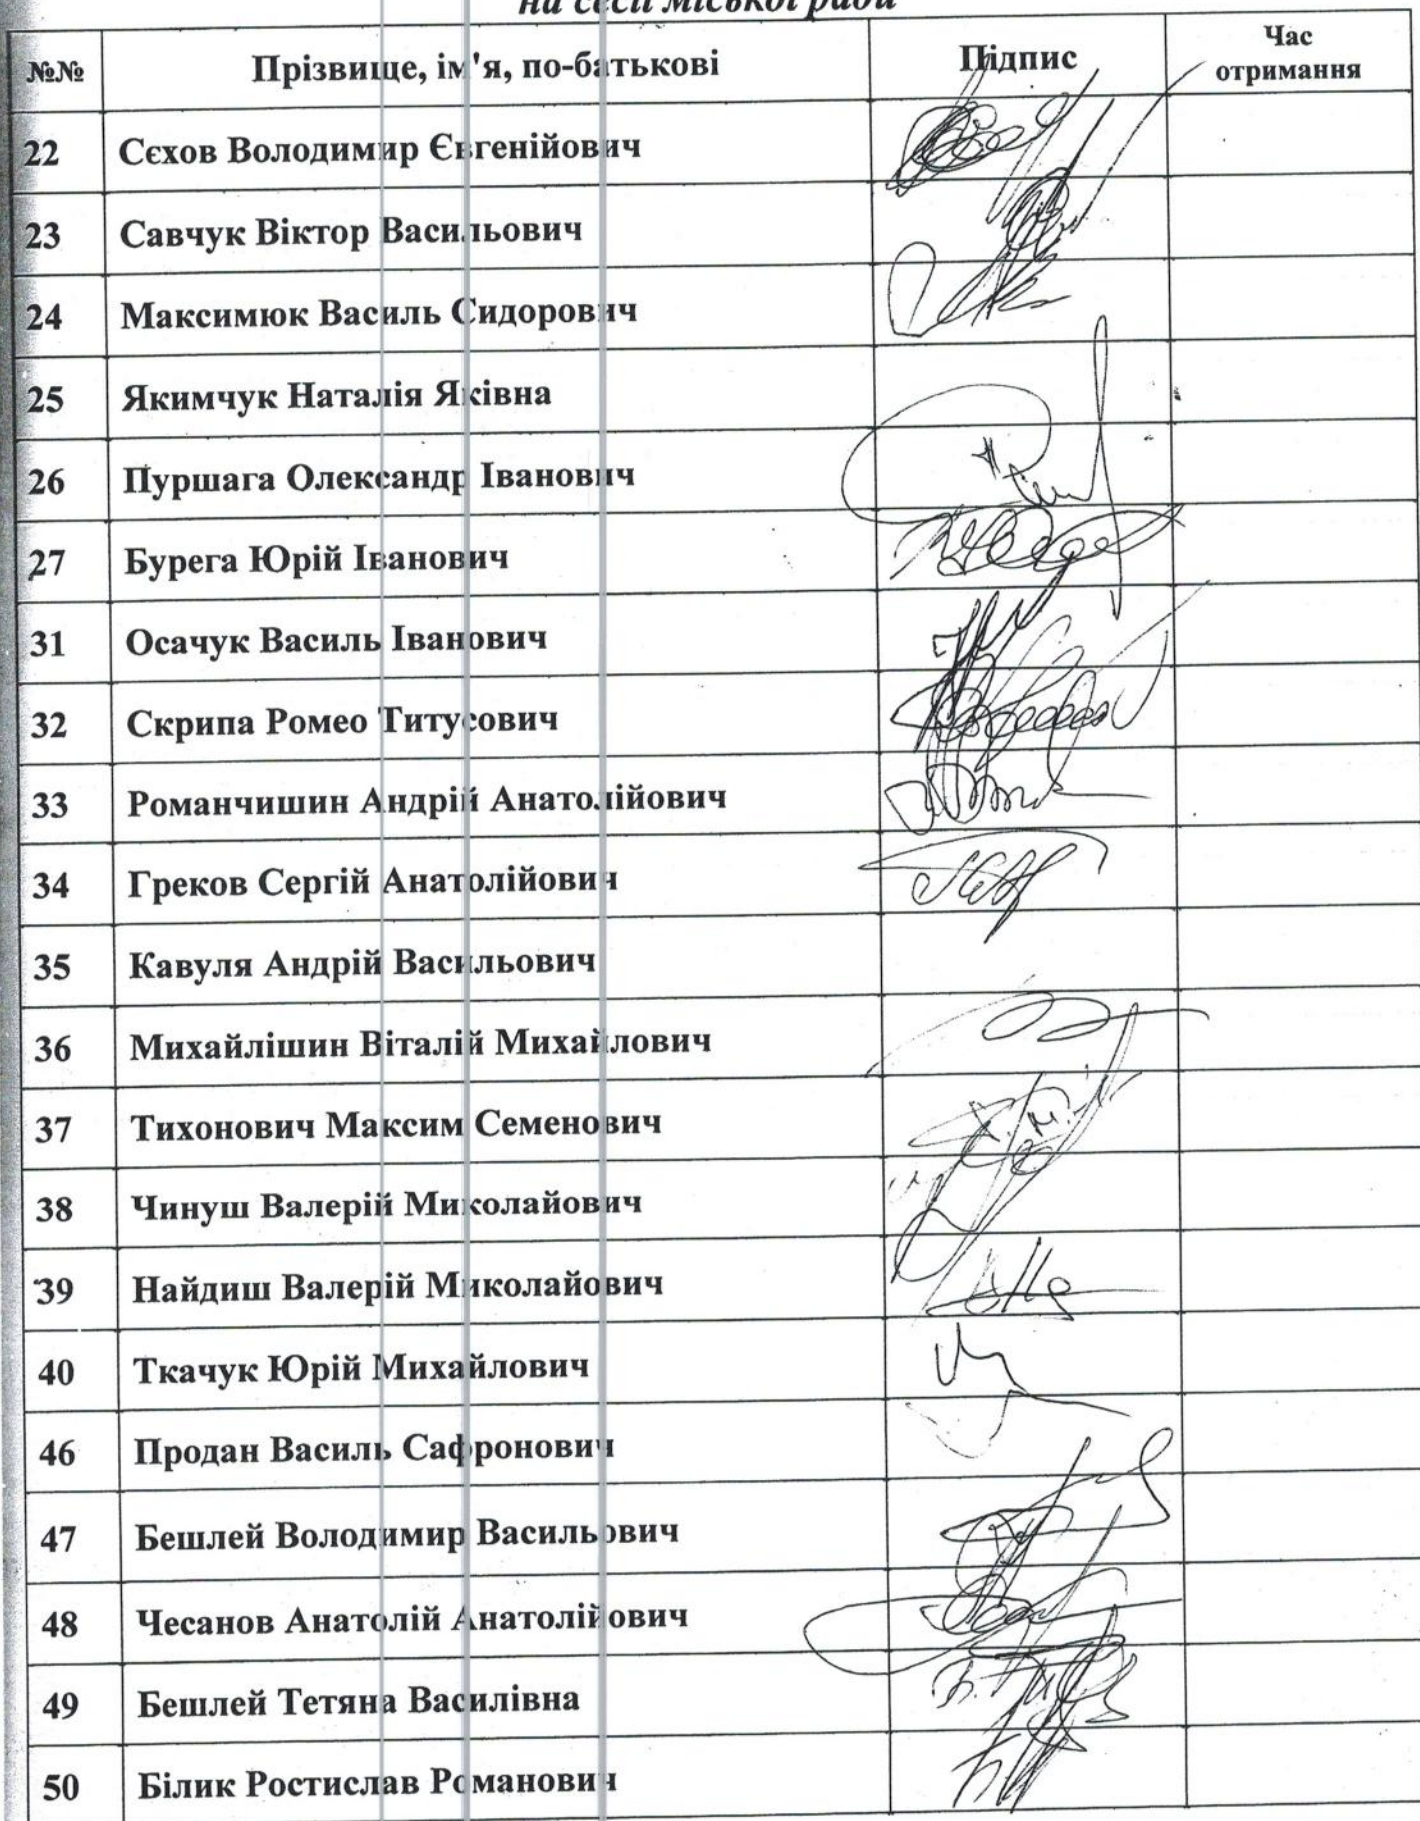 на сесії міської ради
№№ Прізвище, ім'я, по-батькові Підпис Час отримання
22 Сєхов Володимир Євгенійович
23 Савчук Віктор Васильович
24 Максимюк Василь Сидорович
25 Якимчук Наталія Яківна
26 Пуршага Олександр Іванович
27 Бурега Юрій Іванович
31 Осачук Василь Іванович
32 Скрипа Ромео Титусович
33 Романчишин Андрій Анатолійович
34 Греков Сергій Анатолійович
35 Кавуля Андрій Васильович
36 Михайлішин Віталій Михайлович
37 Тихонович Максим Семенович
38 Чинуш Валерій Миколайович
39 Найдиш Валерій Миколайович
40 Ткачук Юрій Михайлович
46 Продан Василь Сафронович
47 Бешлей Володимир Васильович
48 Чесанов Анатолій Анатолійович
49 Бешлей Тетяна Василівна
50 Білик Ростислав Романович